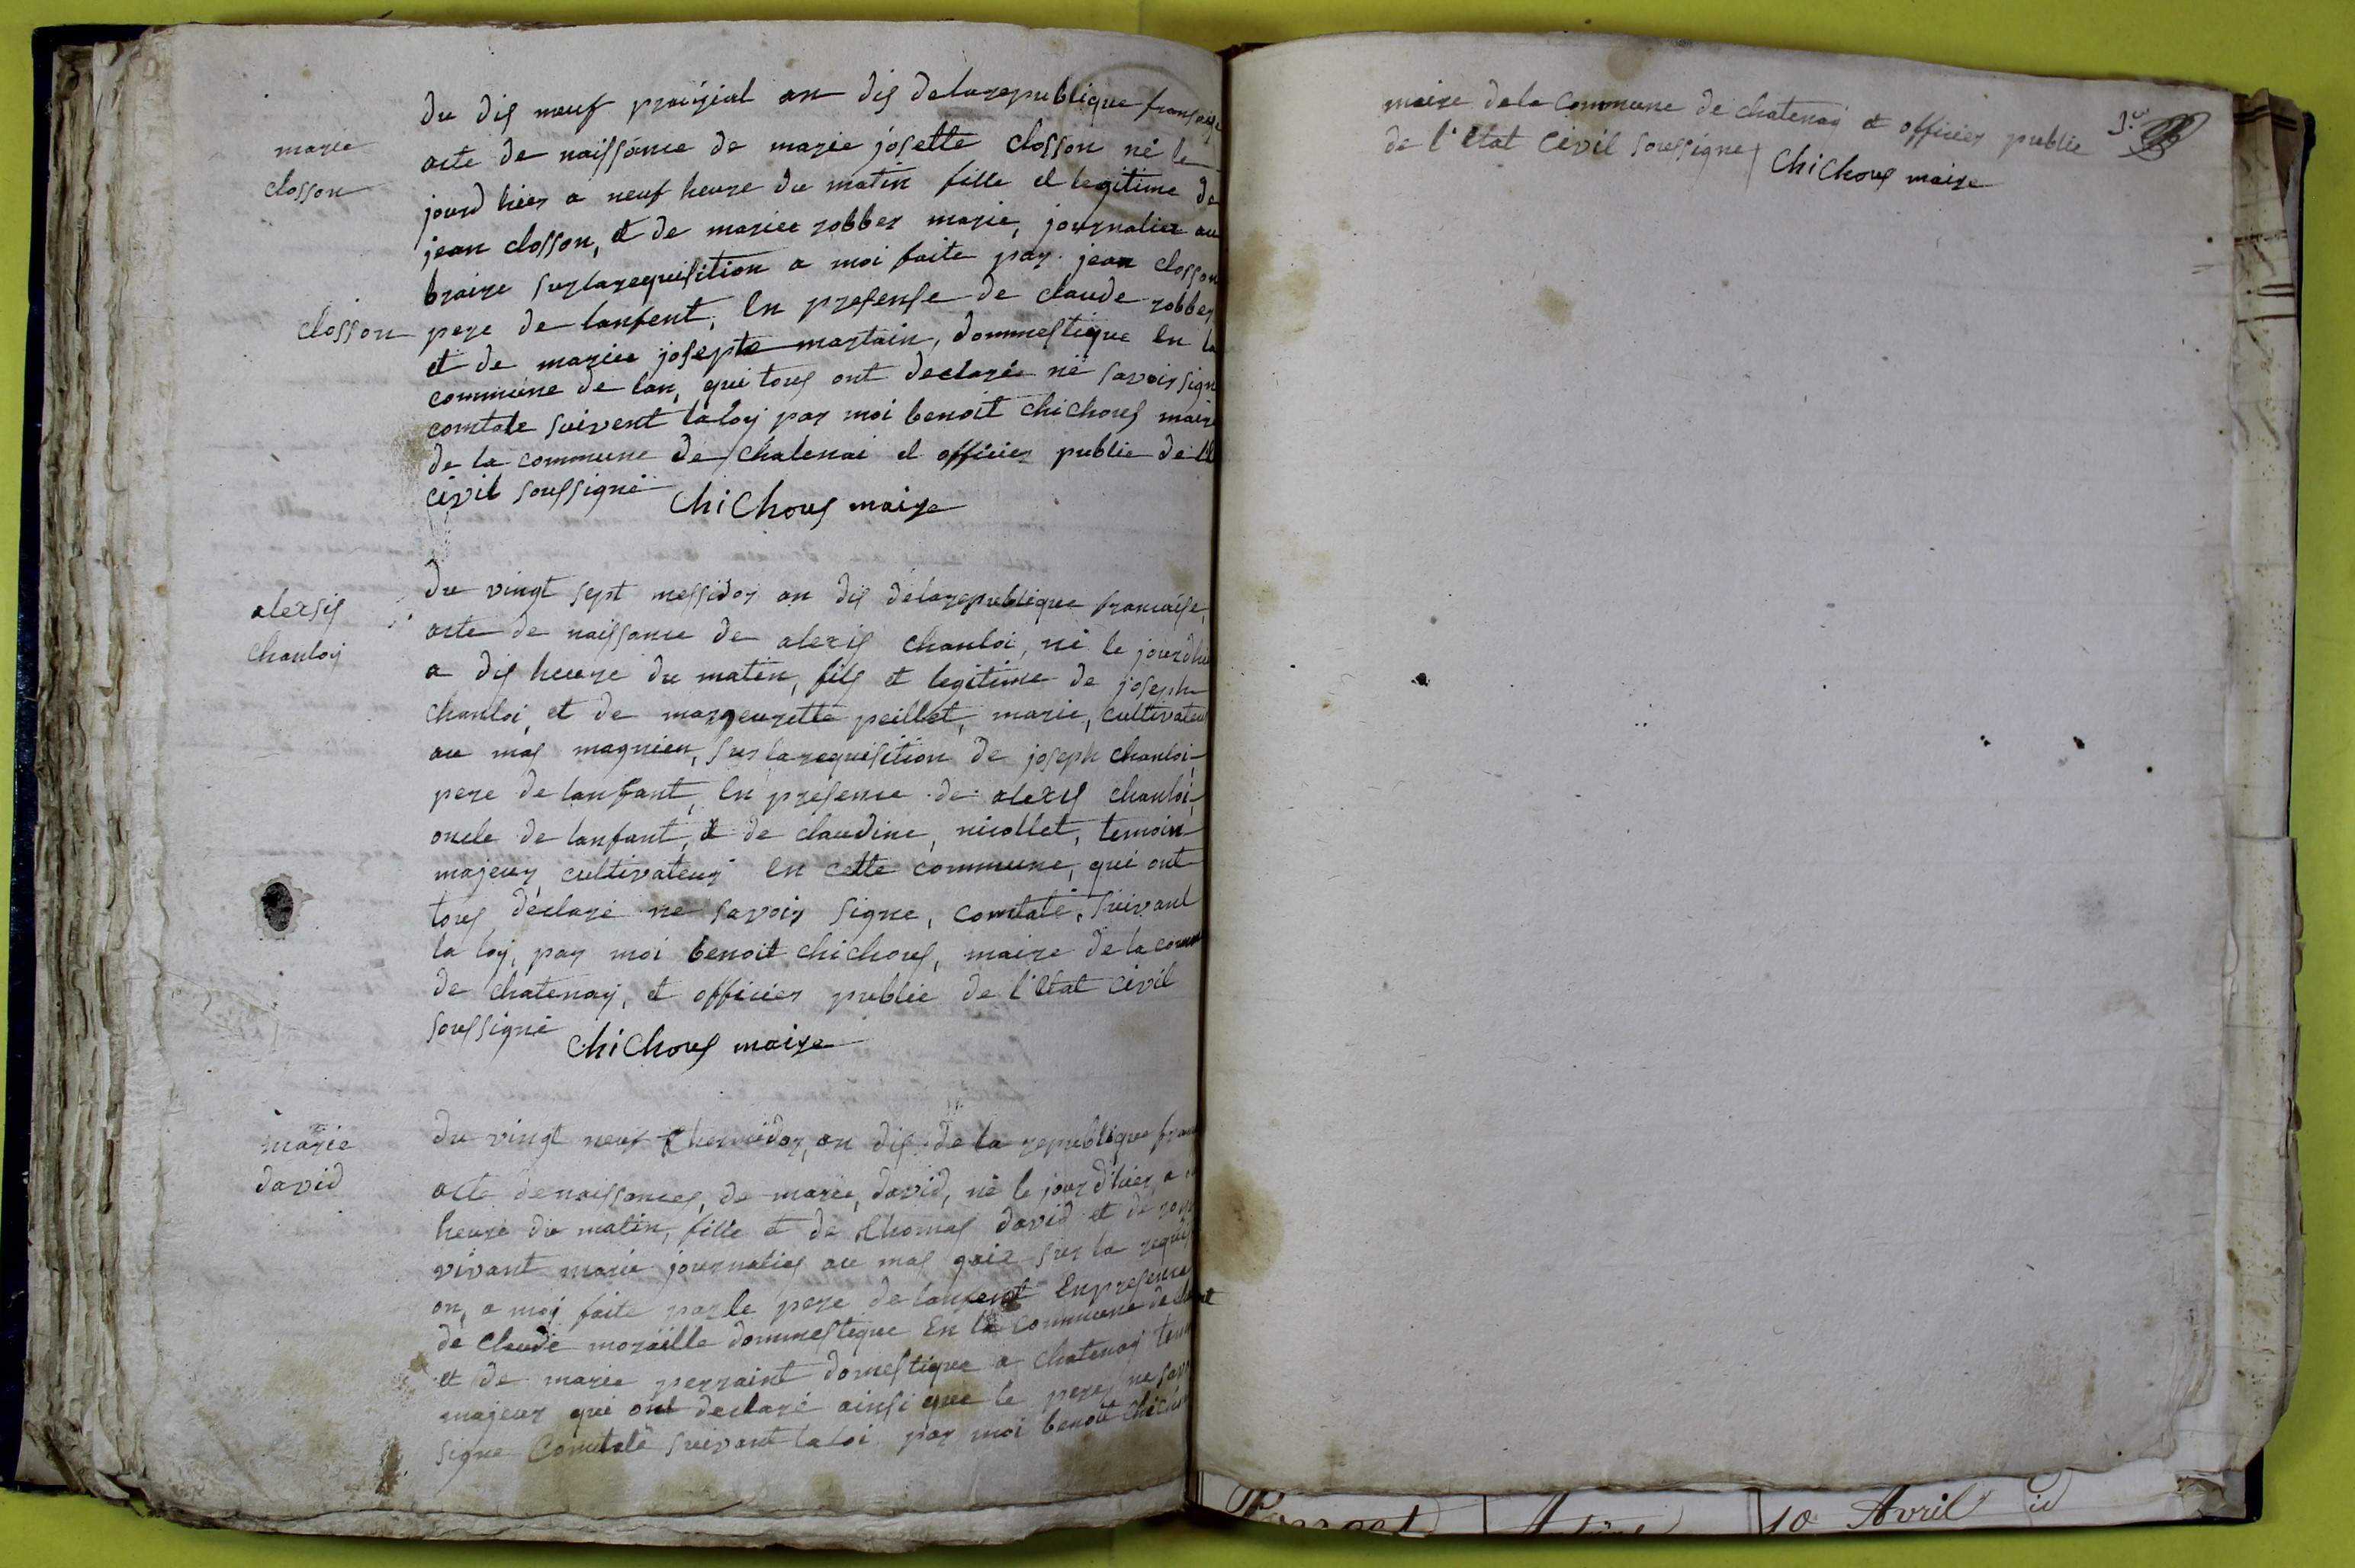 marie
closson
du dis neuf prairial an dis delarepublique fransaise
acte de naissance de marie josette closson né le
jourd hier a neuf heure du matin fille et legitime de
jean closson, et de mariee robber marie, journalier au
braire surlarequisition a moi faite par jean closson
closson
pere de lanfent, En presense de claude robber
et de mariee josepte martain, dommestique En la
commune de lan, qui tous ont declarée né savoir sign
comtate suivent laloy par moi benoit chichous maire
de la commune de chatenai et officier public de l'
civil soussigné
chichous maire
alexsis
chanloy
du vingt sept messidor an dis delarepublique francaise,
acte de naissance de alexis chanloi, né le jourdhier
a dis heure du matin, fils et legitime de joseph
chanloi, et de margeurette peillet, marie, cultivateur
au mas magnien, sur larequisition de joseph chanloi,
pere de lanfant, En presence de alexis chanloi,
oncle de lanfant, et de claudine, nicollet, temoin
majeur, cultivateur En cette commune, qui ont
tous declaré ne savoir signe, comtaté, suivant
la loy, par moi benoit chichous, maire de la comm
de chatenay, et officier public de l'Etat civil
soussigné
chichous maire
marie
david
du vingt neuf thermidor, an dis de la republique fran
acte denaissances, de marie, david, né le jour d'hier, a
heure du matin, fille et de thomas david et de
vivant marié journalier au mas gair sur la requisi
on, a moy faite parle pere de lanfent Enpresence
de claude moraille dommestique En la commune de
et de marie perraint domestique a chatenay tem
majeur qui ont declaré ainsi que le pere, ne sav
signe Comtaté suivant laloi par moi benoit chichou
maire dela commune de chatenay et officier public
de l'Etat civil soussigne
chichous maire
10 Avril id